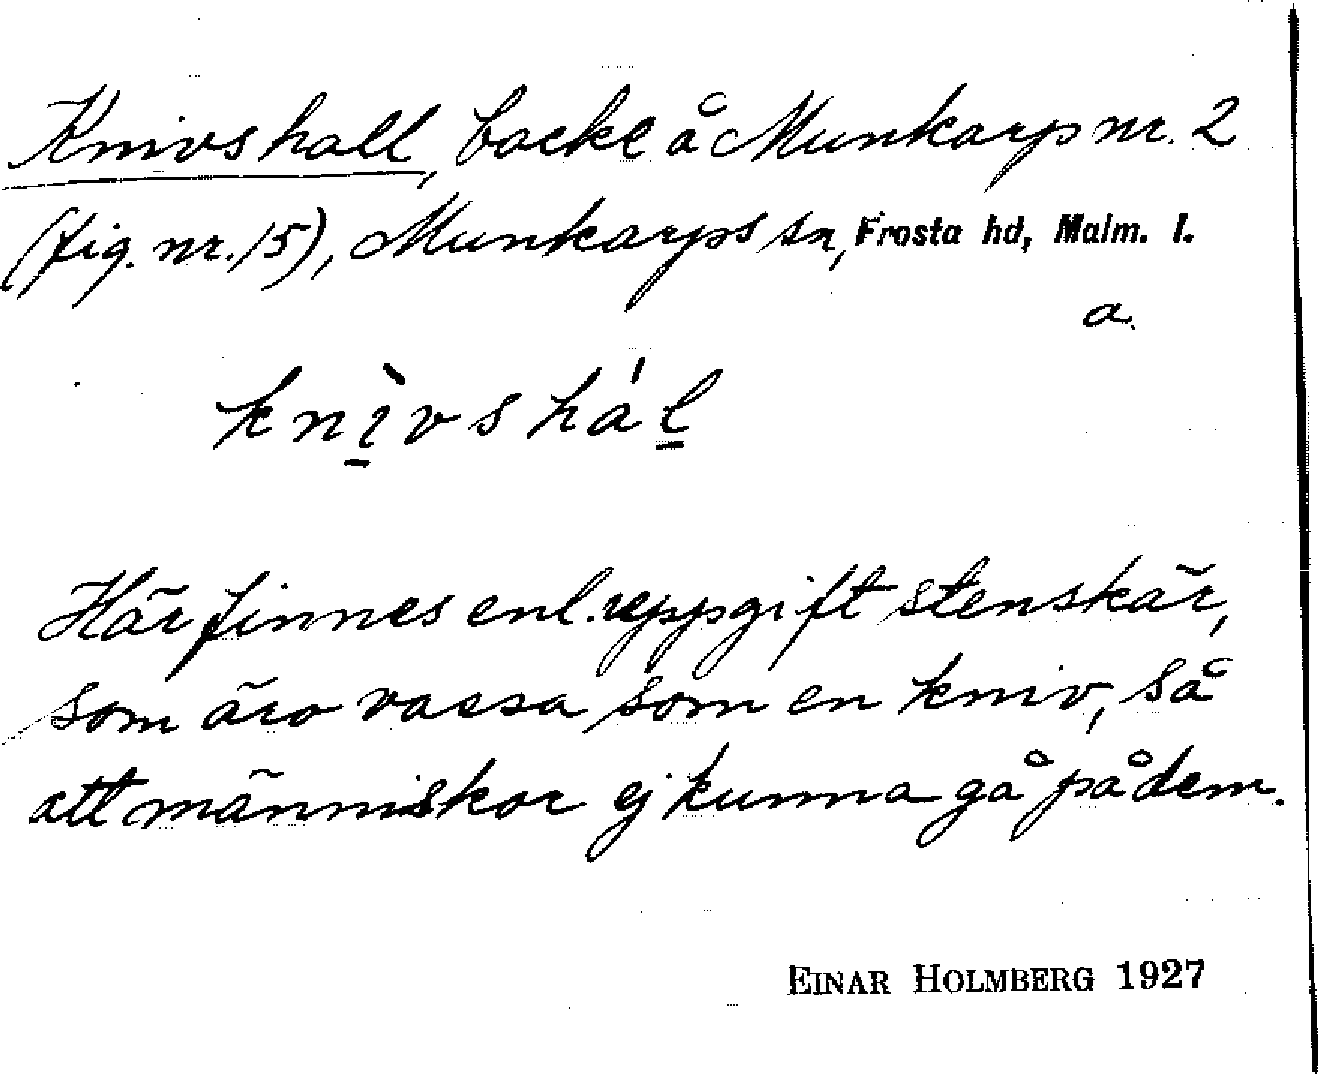 Knivshall, backe å Munkarp nr. 2
(fig. nr. 15), Munkarps sn, Frosta hd, Malm. l.
a.
knìvshál
Här finnes enl. uppgift stenskär,
som äro vassa som en kniv, så
att människor ej kunna gå på dem.
EINAR HOLMBERG 1927